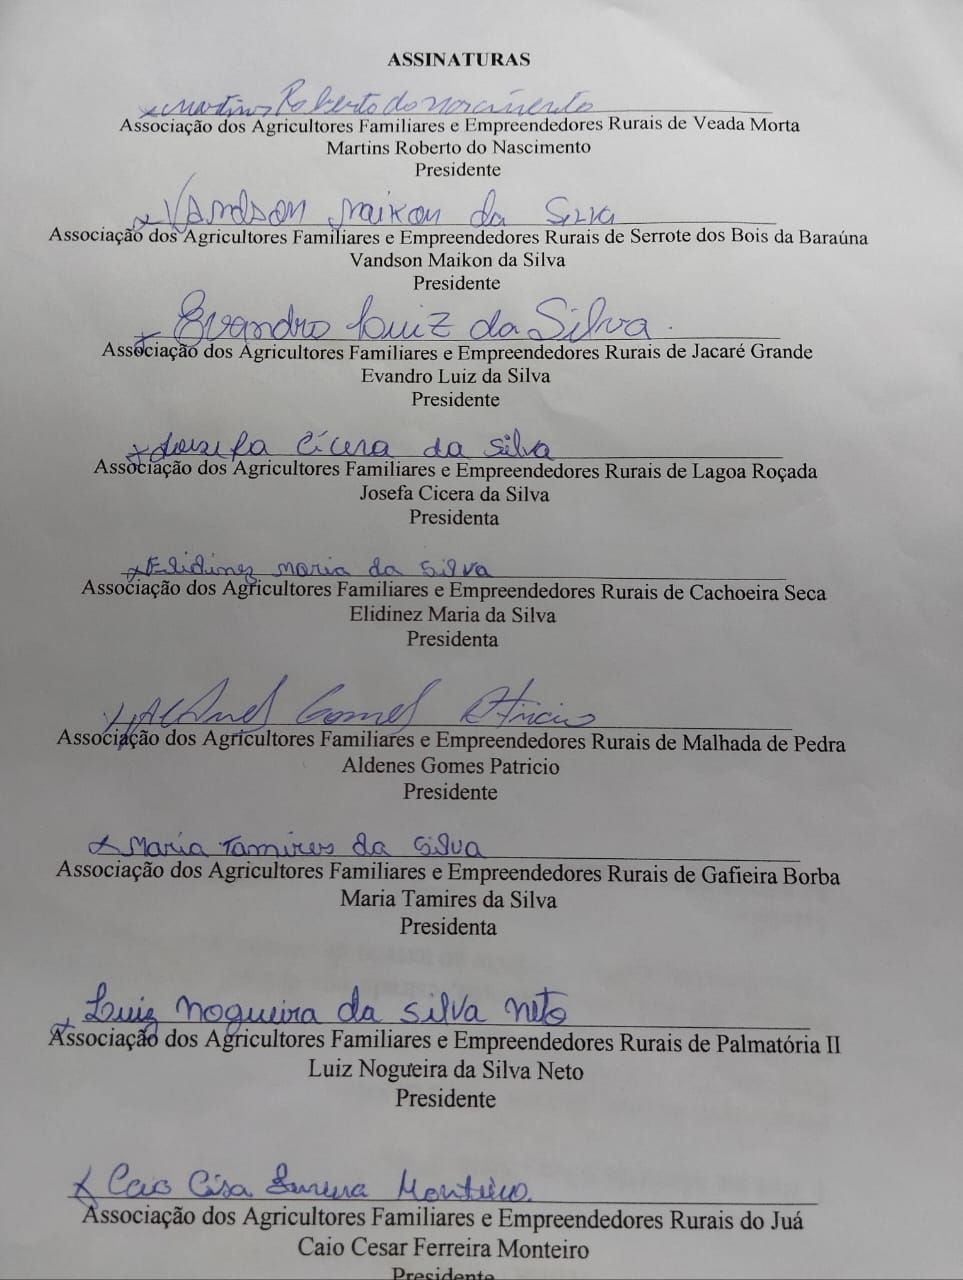 ASSINATURAS
x Martins Roberto do Nascimento
Associação dos Agricultores Familiares e Empreendedores Rurais de Veada Morta
Martins Roberto do Nascimento
Presidente
x Vandson Maikon da Silva
Associação dos Agricultores Familiares e Empreendedores Rurais de Serrote dos Bois da Baraúna
Vandson Maikon da Silva
Presidente
x Evandro Luiz da Silva.
Associação dos Agricultores Familiares e Empreendedores Rurais de Jacaré Grande
Evandro Luiz da Silva
Presidente
x Josefa Cícera da Silva
Associação dos Agricultores Familiares e Empreendedores Rurais de Lagoa Roçada
Josefa Cicera da Silva
Presidenta
x Elidinez Maria da Silva
Associação dos Agricultores Familiares e Empreendedores Rurais de Cachoeira Seca
Elidinez Maria da Silva
Presidenta
x Gomes Patricio
Associação dos Agricultores Familiares e Empreendedores Rurais de Malhada de Pedra
Aldenes Gomes Patricio
Presidente
x Maria Tamires da Silva
Associação dos Agricultores Familiares e Empreendedores Rurais de Gafieira Borba
Maria Tamires da Silva
Presidenta
x Luiz Nogueira da Silva Neto
Associação dos Agricultores Familiares e Empreendedores Rurais de Palmatória II
Luiz Nogueira da Silva Neto
Presidente
x Caio Monteiro.
Associação dos Agricultores Familiares e Empreendedores Rurais do Juá
Caio Cesar Ferreira Monteiro
Presidente